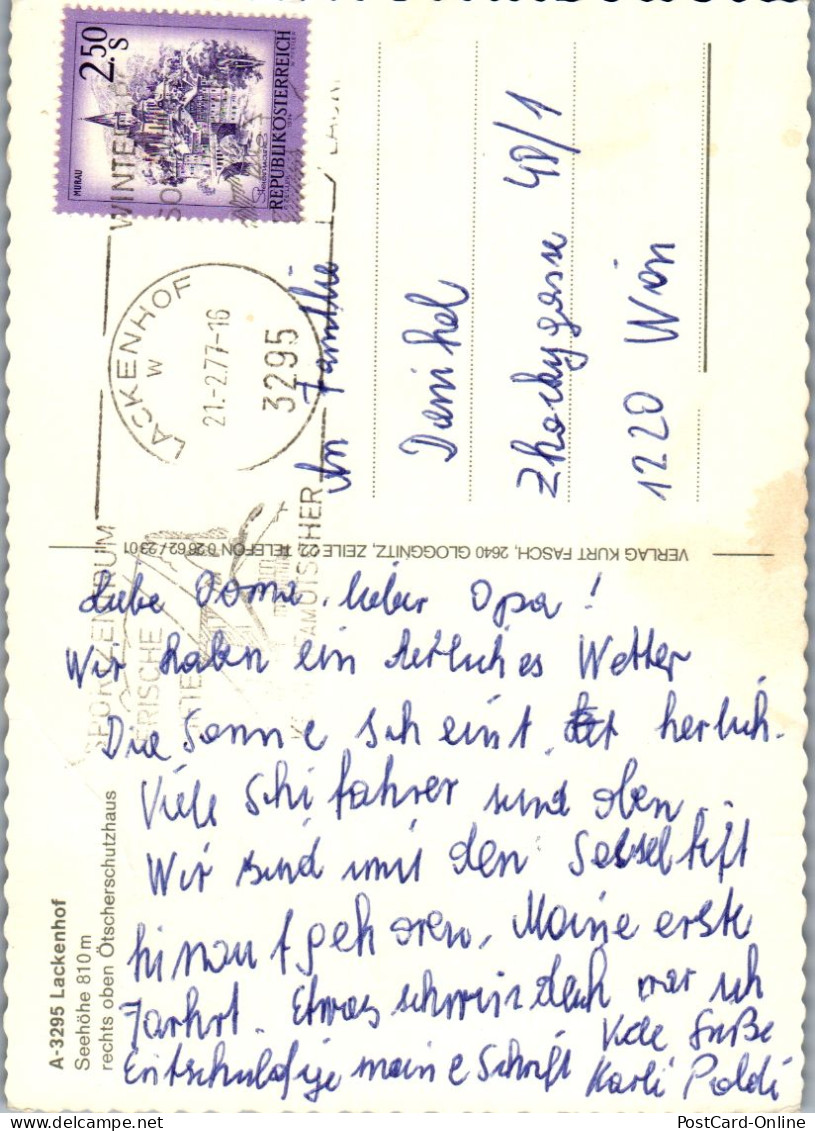 2.50 S
MURAU
REPUBLIK ÖSTERREICH
LACKENHOF
W
21.-2.77-16
3295
SPORTZENTRUM
An Familie
40/1
1220 Wien
VERLAG KURT FASCH, 2640 GLOGGNITZ, ZEILE 22, TELEFON 0 26 62 / 2301
A-3295 Lackenhof
Seehöhe 810 m
rechts oben Ötscherschutzhaus
Liebe Ooma, lieber Opa!
Wir haben ein herliches Wetter
Die Sonne scheint herlich.
Viele Schifahrer sind oben
Wir sind mit den Sesselift
hinauf gefahren, Meine erste
Fahrt. Etwas schwindlich war ich
Entschuldige meine Schrift
Viele Grüße
Karli Poldi
PostCard-Online